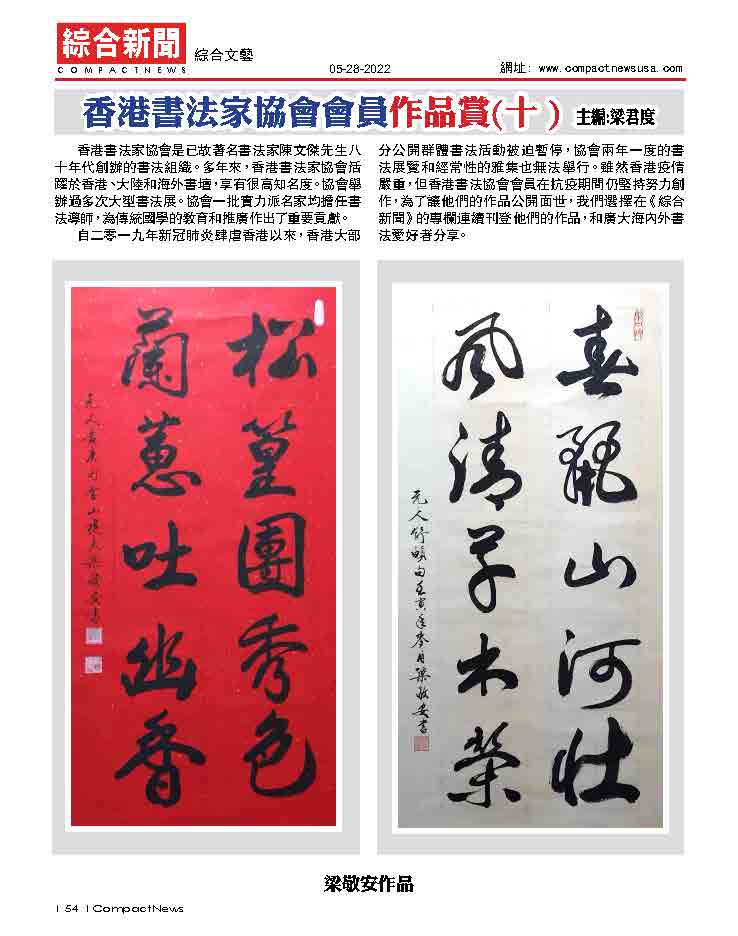 綜合新聞
COMPACTNEWS
綜合文藝
05-28-2022
網址: www.compactnewsusa.com
香港書法家協會會員作品賞(十) 主編:梁君度
香港書法家協會是已故著名書法家陳文傑先生八
十年代創辦的書法組織。多年來，香港書法家協會活
躍於香港、大陸和海外書壇，享有很高知名度。協會舉
辦過多次大型書法展。協會一批實力派名家均擔任書
法導師，為傳統國學的教育和推廣作出了重要貢獻。
自二零一九年新冠肺炎肆虐香港以來，香港大部
分公開群體書法活動被迫暫停，協會兩年一度的書
法展覽和經常性的雅集也無法舉行。雖然香港疫情
嚴重，但香港書法協會會員在抗疫期間仍堅持努力創
作，為了讓他們的作品公開面世，我們選擇在《綜合
新聞》的專欄連續刊登他們的作品，和廣大海內外書
法愛好者分享。
松篁團秀色
蘭蕙吐幽香
春麗山河壯
風清草木榮
梁敬安作品
| 54 | CompactNews